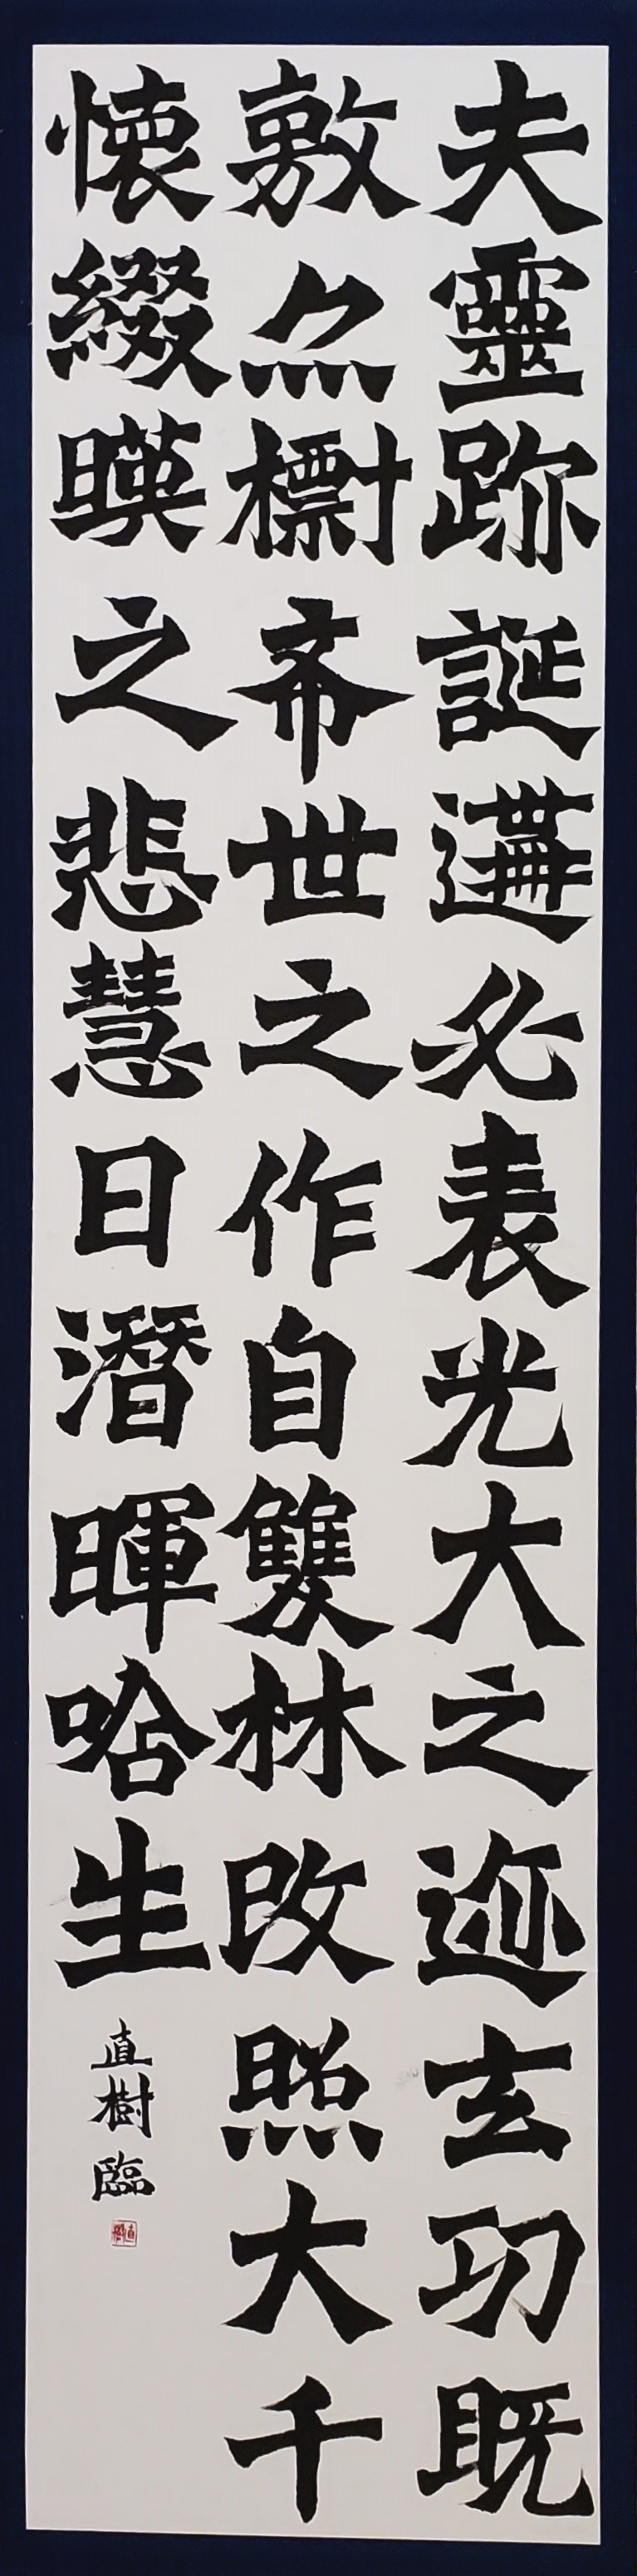 夫靈跡誕遘必表光大之迹玄功既
敷亦標希世之作自雙林改照大千
懷綴暎之悲慧日潛暉唅生
直樹臨